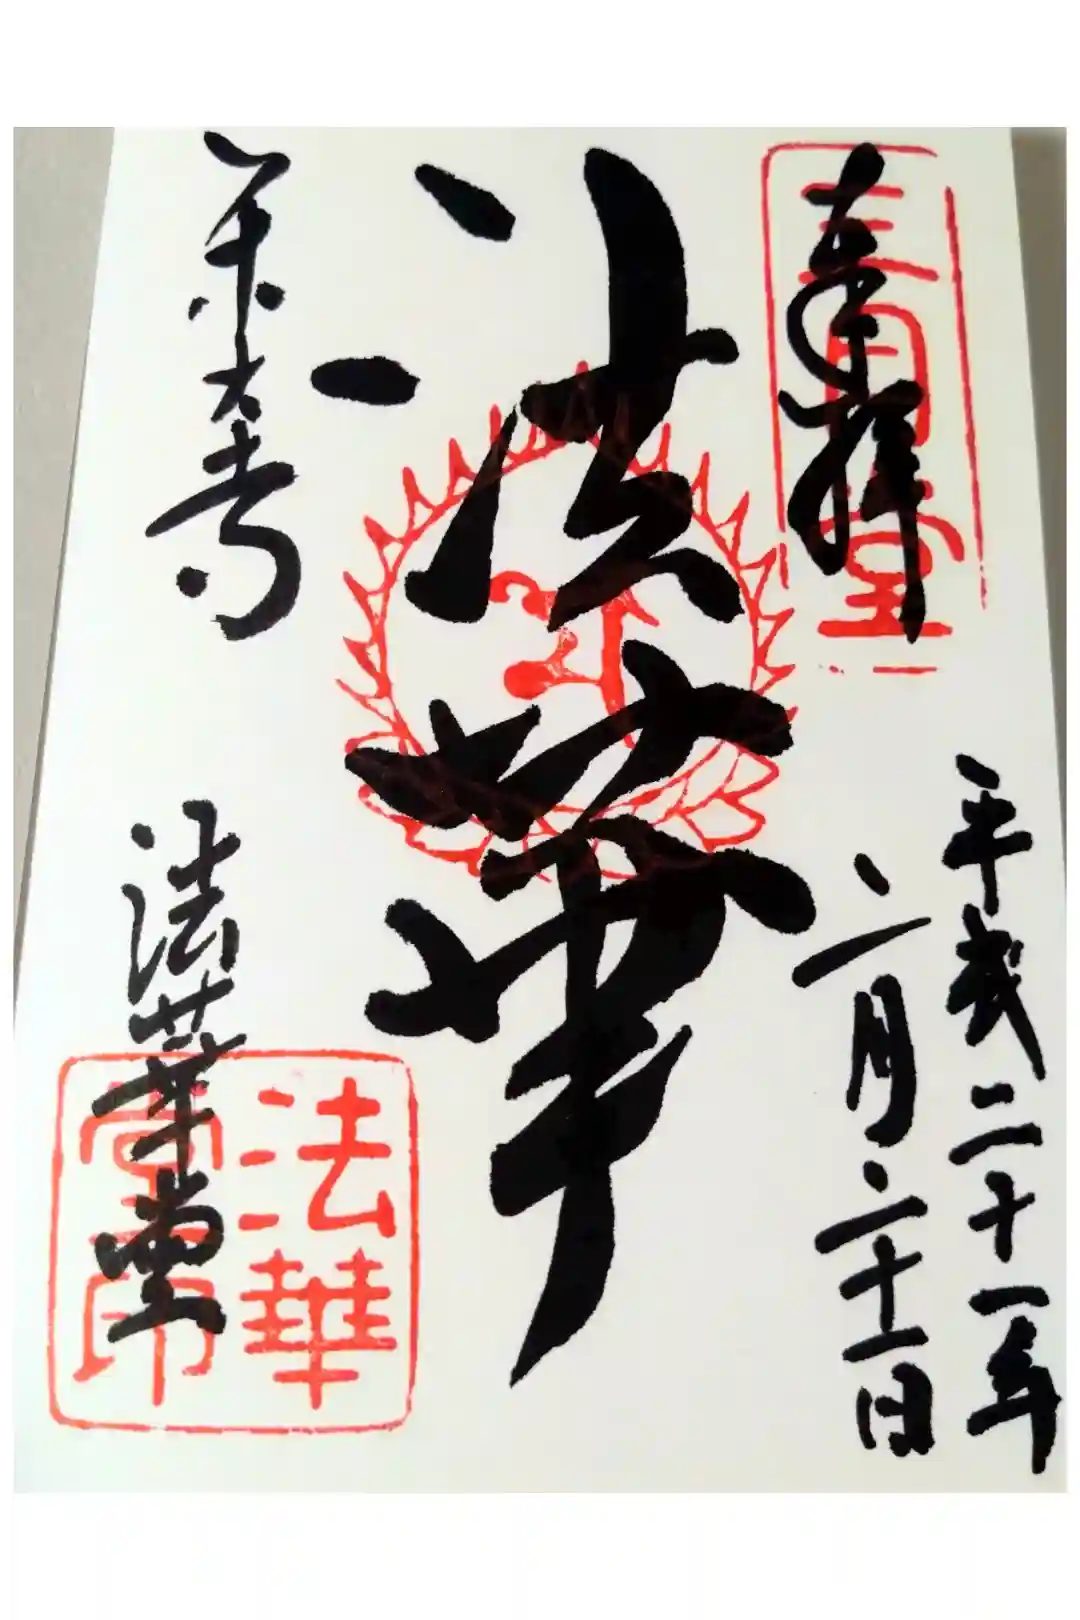 奉拝
三月堂
平成二十一年
二月二十一日
法華
東大寺
法華堂
法華堂印